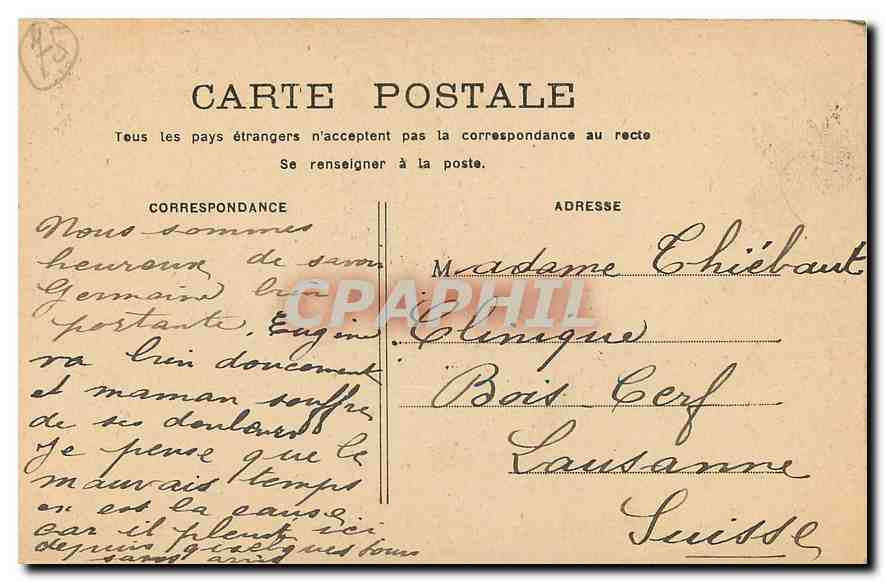 CARTE POSTALE
Tous les pays étrangers n'acceptent pas la correspondance au recto
Se renseigner à la poste.
CORRESPONDANCE
Nous sommes
heureux de savoir
Germaine bien
portante. Eugène
va bien doucement
et maman souffre
de ses douleurs
Je pense que le
mauvais temps
en est la cause
car il pleut ici
depuis quelques jours
sans arrêt
ADRESSE
Madame Thiébaut
Clinique
Bois Cerf
Lausanne
Suisse
CPAPHIL